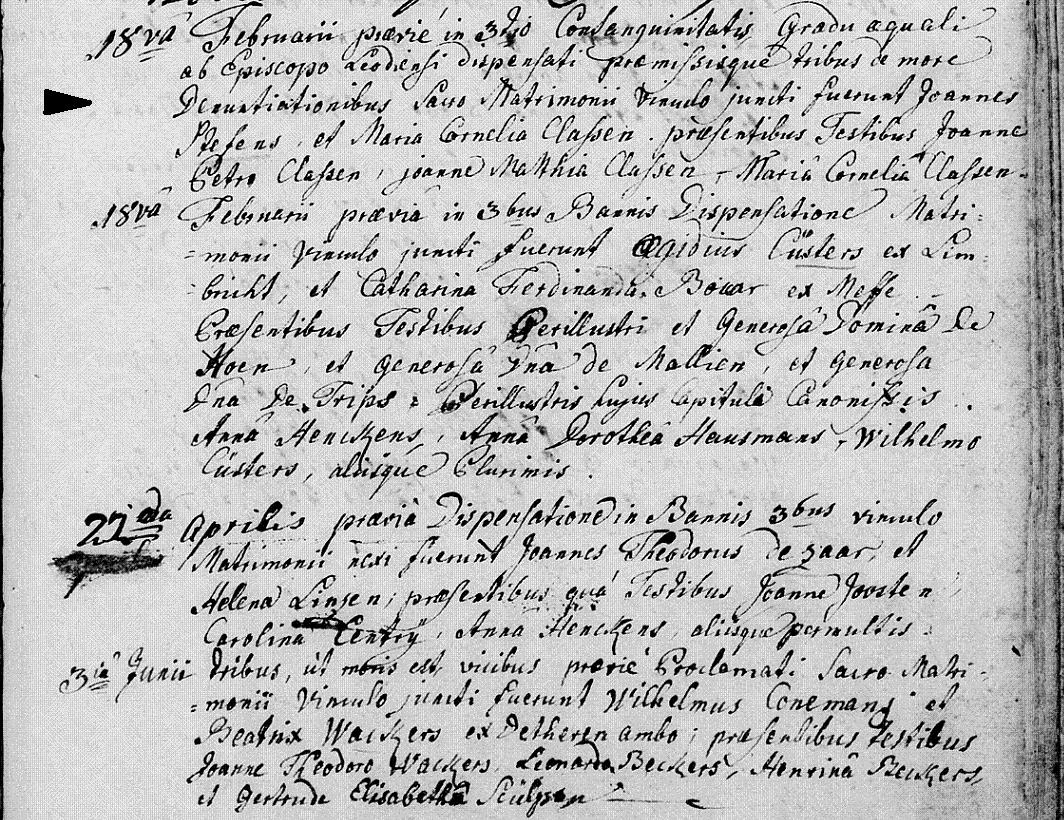 18va Februarii prævié in 3tio Consanguinitatis Gradu æquali
ab Episcopo Leodiensi dispensati præmissisque tribus de more
Denuntiationibus Sacro Matrimonii Vinculo juncti fuerunt Joannes
Stefens, et Maria Cornelia Classen. præsentibus Testibus Joanne
Petro Classen, joanne Matthia Classen, Mariâ Corneliâ Classen.
18va Februarii præviâ in 3bus Bannis Dispensatione Matri-
=monii Vinculo juncti fuerunt Ægidius Cüsters ex Lim-
bricht, et Catharina Ferdinanda Bovar ex Meffe
Præsentibus Testibus Perillustri et Generosâ Dominâ De
Hoen, et Generosâ Dnâ de Mallien, et Generosa
Dna De Trips = Perillustris hujus Capituli Canonissis.
Annâ Henckens, Annâ Dorotheâ Hausmans, Wilhelmo
Cüsters, aliisque Plurimis.
22da Aprilis præviâ Dispensatione in Bannis 3bus vinculo
Matrimonii nexi fuerunt Joannes Theodorus de zaar, et
Helena Linsen, præsentibus quâ Testibus Joanne Joosten,
Carolina Centry, Anna Henckens, aliisque permultis.
3tiâ Junii tribus, ut moris est, vicibus prævié Proclamati Sacro Matri-
=monii Vinculo juncti fuerunt Wilhelmus Conemans et
Beatrix Wackers ex Detheren ambo; præsentibus testibus
Joanne Theodoro Wackers, Leonardo Beckers, Henrinâ Beckers,
et Gertrude Elisabethâ Scülpen